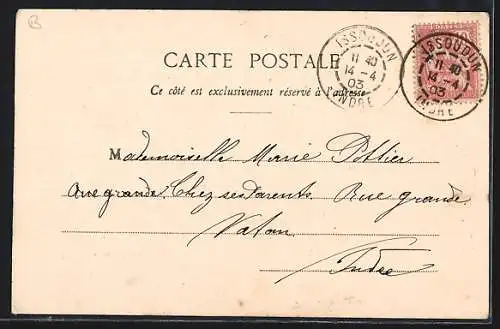 B
ISSOUDUN
11 40
14 - 4
03
INDRE
ISSOUDUN
11 40
14 - 4
03
INDRE
CARTE POSTALE
Ce côté est exclusivement réservé à l'adresse
Mademoiselle Marie Pottier
Chez ses Parents. Rue grande
Vatan
Indre